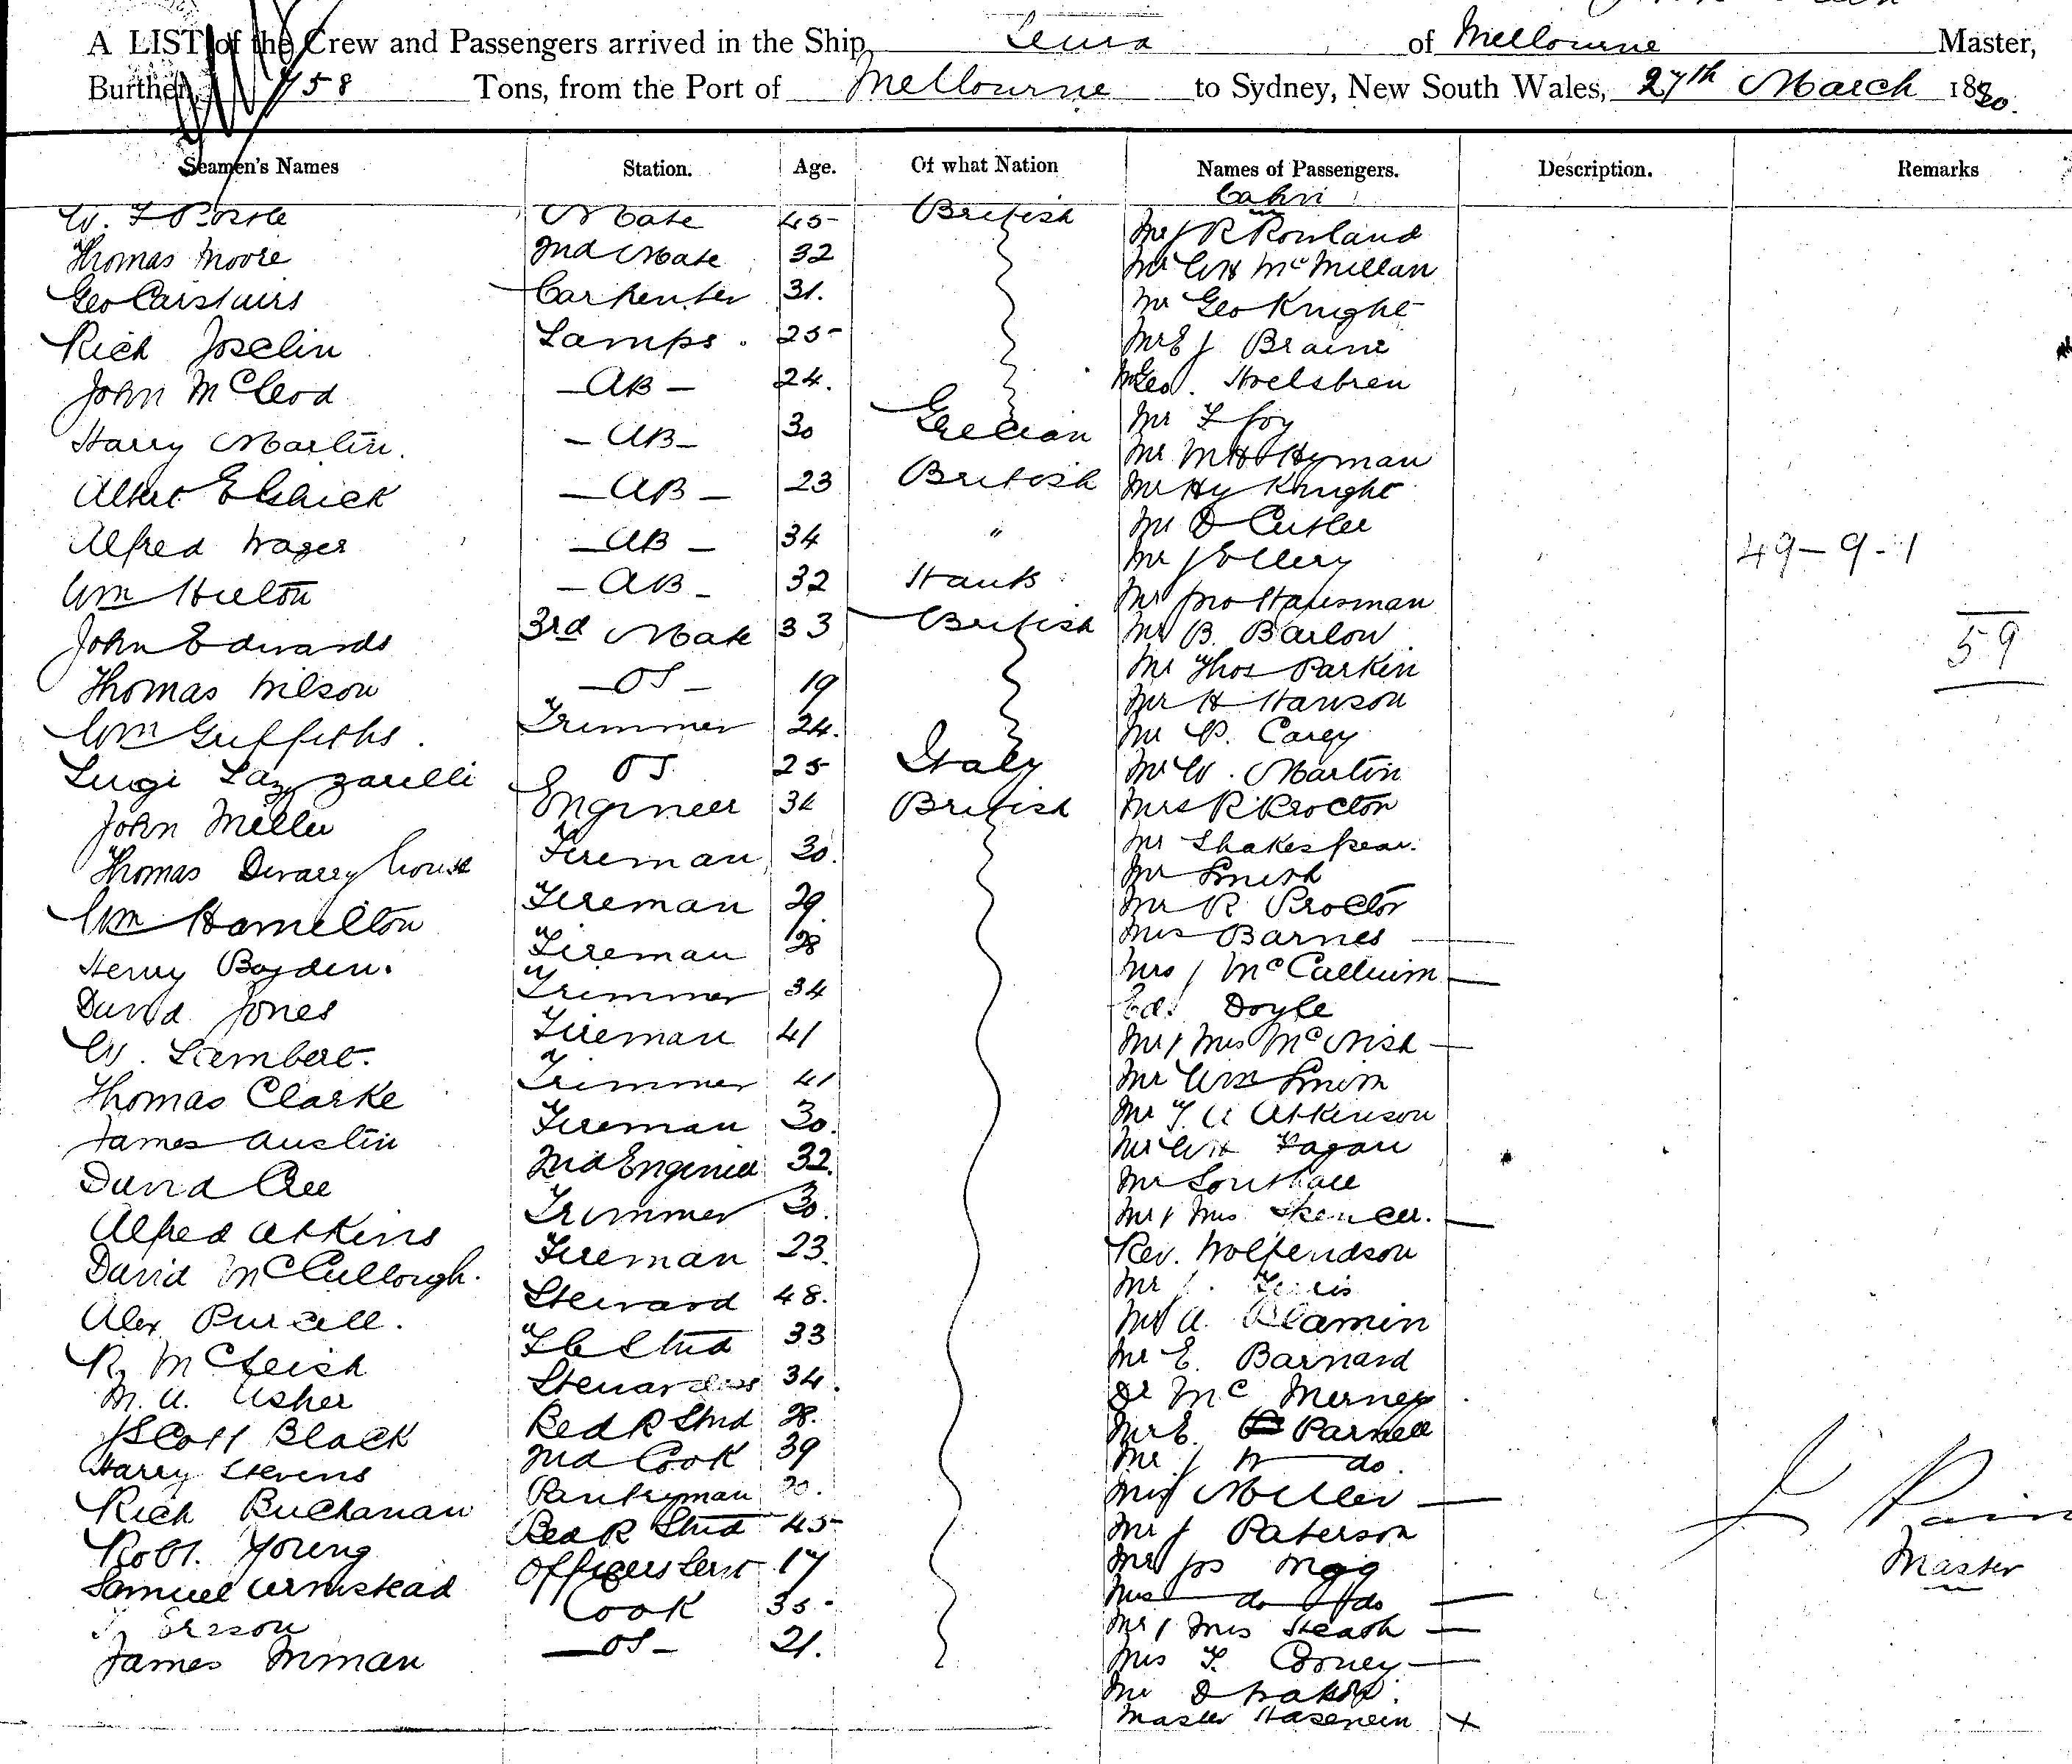 A LIST of the Crew and Passengers arrived in the Ship Leura of Melbourne Master,
Burthen, 758 Tons, from the Port of Melbourne to Sydney, New South Wales, 27th March 1890.
Seamen's Names Station. Age. Of what Nation Names of Passengers. Description. Remarks
Cabin
W. Mate 45 British Mr J R Rowland
Thomas Moore 2nd Mate 32 Mr WH McMillan
Geo Carstairs Carpenter 31. Mr Geo Knight
Rich Joselin Lamps. 25 Mr E J Braine
John McLeod - AB - 24. Mr Geo.
Harry Martin. - AB - 30 Grecian Mr F Joy
Mr M H Hyman
Albert - AB - 23 British Mr Hy Knight
Alfred Wager - AB - 34 " Mr D Cutler
Mr J Ellery 49-9-1
Wm Hulton - AB - 32 Mr Jno Hausman
John Edwards 3rd Mate 33 British Mr B. Barlow 59
Mr Thos Parkin
Thomas Wilson - OS - 19 Mr H Hanson
Wm Griffiths. Trimmer 24. Mr P. Carey
Luigi Lazzarelli OS 25 Italy Mr W. Martin
John Miller Engineer 34 British Mrs R Procton
Thomas house Fireman 30. Mr Shakespear.
Mr Smith
Wm Hamelton Fireman 29. Mr R Proctor
Henry Boyden. Fireman 28 Mrs Barnes -
David Jones Trimmer 34 Mrs J McCallum -
Ed. Doyle
W. Lambert. Fireman 41 Mr & Mrs McNish -
Thomas Clarke Trimmer 41 Mr Wm Smith
James Austin Fireman 30. Mr T. A Atkinson
David Cree 2nd Engineer 32. Mr WH Fagan
Mr Southall
Alfred Atkins Trimmer 30. Mr & Mrs Spencer. -
David McCullough. Fireman 23. Rev. Wolfendson
Alex Purcell. Steward 48. Mr
R. McLeish F C Stwd 33 Mr A. Blamin
M. A. Usher Stewardess 34. Mr E. Barnard
J Scott Black Bed R Stwd 28. Dr Mc Merney
Harry Stevens 2nd Cook 39 Mr E. Parnell
Mr J W do.
Rich Buchanan Pantryman 20. Miss Miller -
Robt. Young Bed R Stwd 45 Mr J Paterson
Samuel Armstead Officers Servt 17 Mr Jos Mogg
Cook 35 Mrs do do -
James Inman - OS - 21. Mr & Mrs Heath -
Mrs F. Corney -
Mr D
Master X
Master